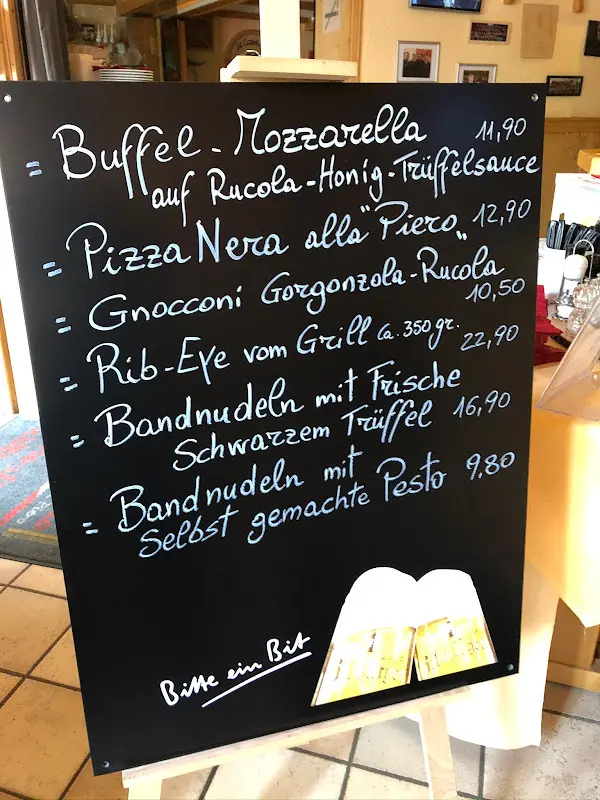 = Buffel-Mozzarella 11,90
auf Rucola-Honig-Trüffelsauce
= Pizza Nera alla "Piero„ 12,90
= Gnocconi Gorgonzola-Rucola
10,50
= Rib-Eye vom Grill ca. 350gr. 22,90
= Bandnudeln mit Frische
Schwarzem Trüffel 16,90
= Bandnudeln mit
Selbst gemachte Pesto 9,80
Bitte ein Bit